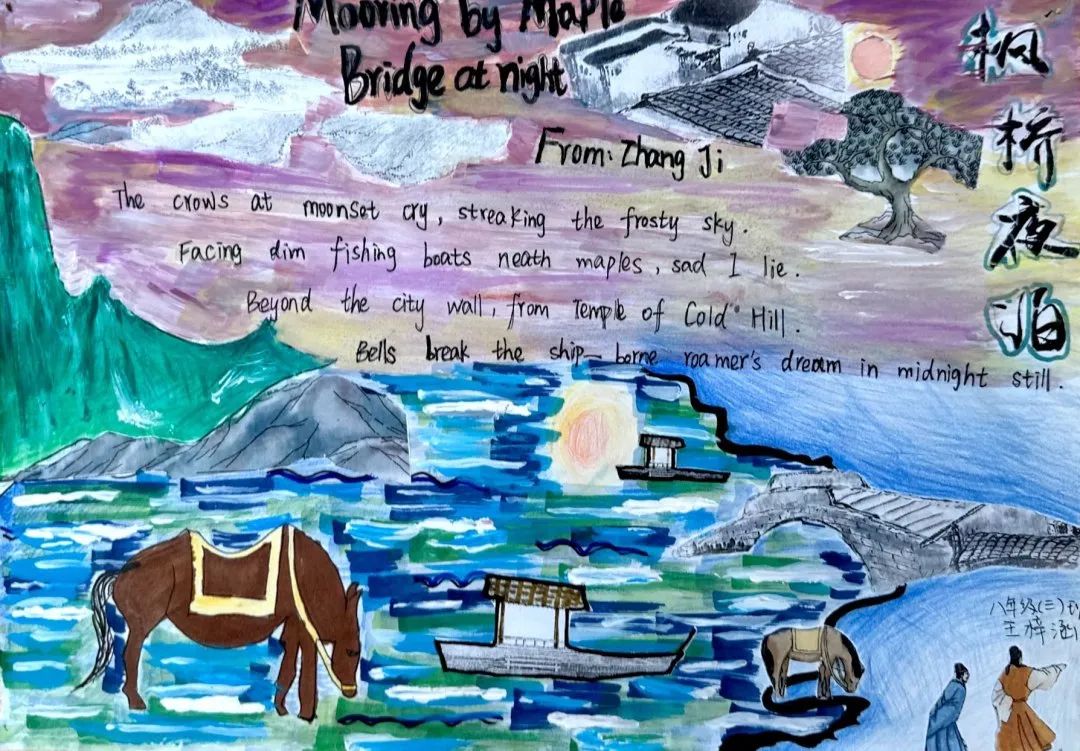 Mooring by Maple
Bridge at night
From: Zhang Ji
The crows at moonset cry, streaking the frosty sky.
Facing dim fishing boats neath maples, sad I lie.
Beyond the city wall, from Temple of Cold Hill.
Bells break the ship—borne roamer's dream in midnight still.
枫桥夜泊
八年级(三)
王梓涵